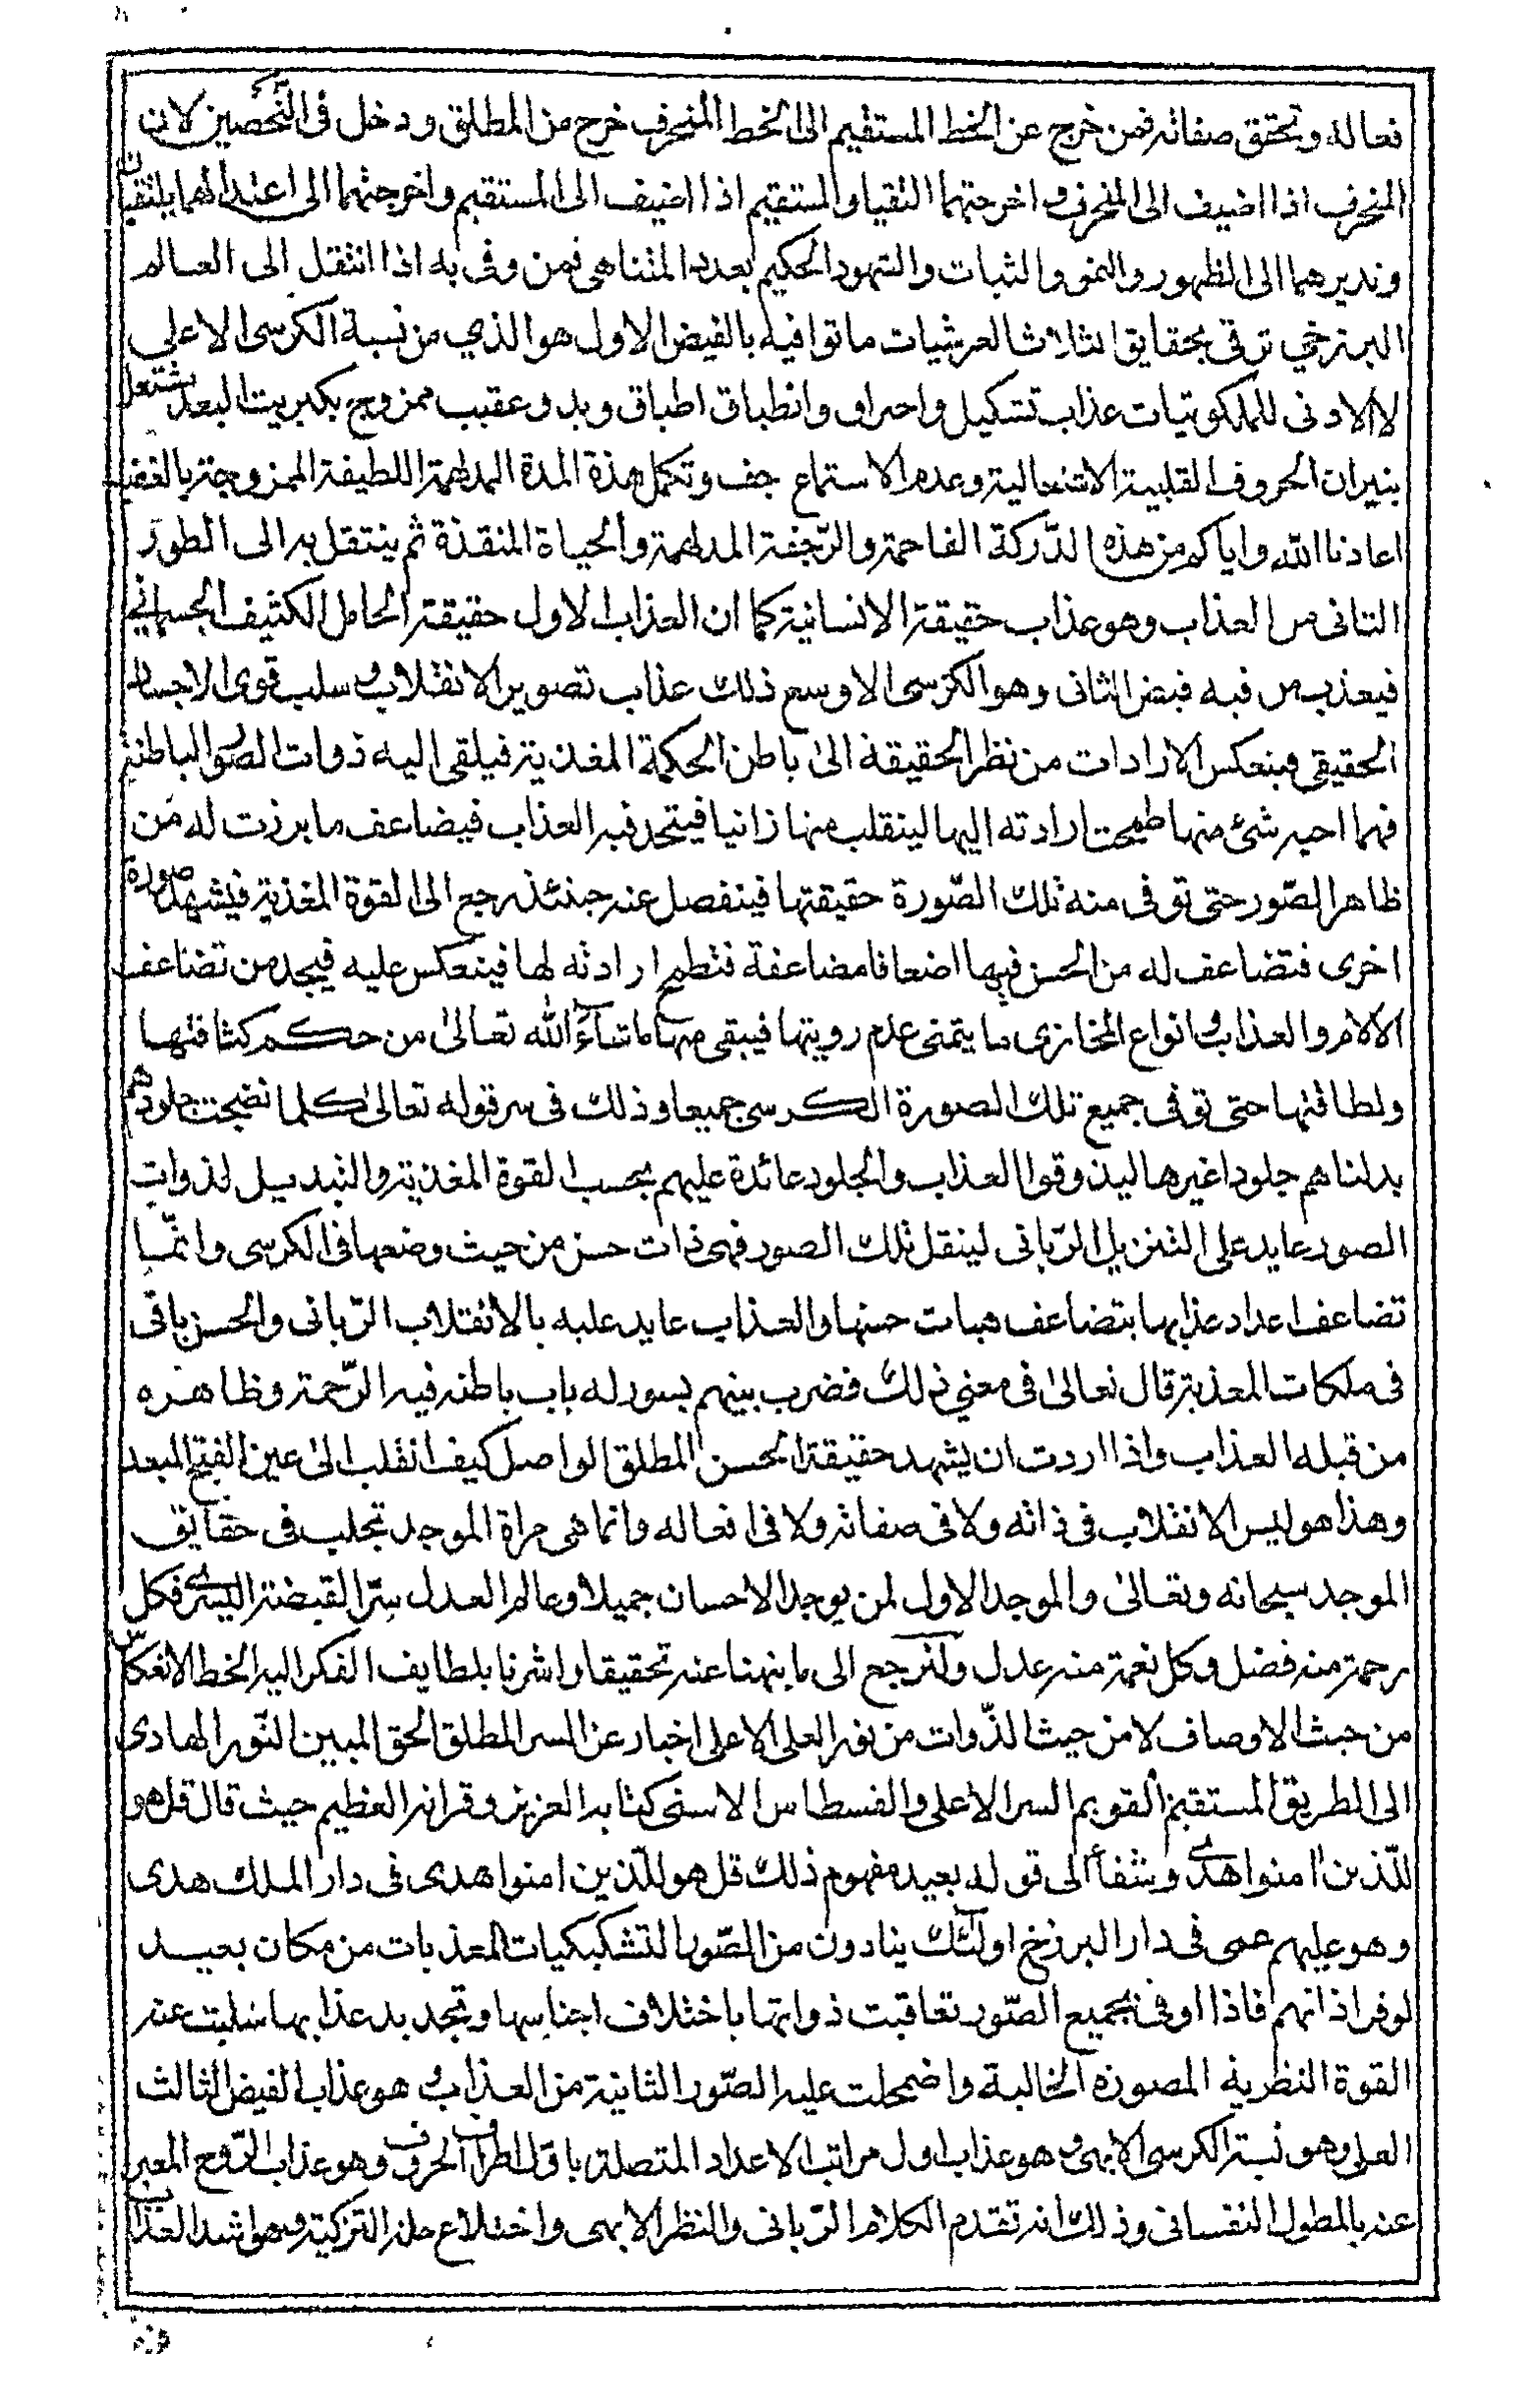 فعاله وتحقق صفاته فمن خرج عن الخط المستقيم الى الخط المنحرف خرج من المطلق ودخل فى التخصيص لان
المنحرف اذا اضيف الى المنحرف واخرجتهما التقيا والمستقيم اذا اضيف الى المستقيم واخرجتهما الى اعتدالهما يلتقيان
وتدبرهما الى الظهور والنمو والثبات والشهود الحكيم بعدد المتناهى فمن وفى به اذا انتقل الى العالم
البرزخى ترقى بحقايق الثلاث العرشيات ماتوا فيه بالفيض الاول هو الذي من نسبة الكرسى الاعلى
لا الادنى للملكوتيات عذاب تشكيل واحراق وانطباق اطباق وبد وعقيب ممزوج بكبريت البعد يشتعل
بنيران الحروف القلبية الاشتعالية وعدم الاستماع جف وتكمل هذة المدة المدلهمة اللطيفة الممزوجة
اعاذنا الله واياكم من هذه الدركة الفاحمة والرجفة المدلهمة والحياة المنقذة ثم ينتقل به الى الطور
الثانى من العذاب وهو عذاب حقيقة الانسانية كما ان العذاب الاول حقيقة الحامل الكثيف الجسمانى
فيعذب من فيه فيض الثانى وهو الكرسى الاوسع ذلك عذاب تصوير الانقلاب وسلب قوى الاجساد
الحقيقى فينعكس الارادات من نظر الحقيقة الى باطن الحكمة المغذية فيلقى اليه ذوات الصور الباطنة
فهما احبه شئ منها طمحت ارادته اليها لينقلب منها زانيا فيتحد فيه العذاب فيضاعف ما برزت له من
ظاهر الصور حتى توفى منه تلك الصورة حقيقتها فينفصل عنه حينئذ رجع الى القوة المغذية فيشهد صورة
اخرى فتضاعف له من الحسن فيها اضعافا مضاعفة فتطمح ارادته لها فينعكس عليه فيجد من تضاعف
الالام والعذاب وانواع المخازى ما يتمنى عدم رويتها فيبقى منها ماشاء الله تعالى من حكم كثافتها
ولطافتها حتى توفى جميع تلك الصورة الكرسى جميعا وذلك فى سر قوله تعالى كلما نضجت جلودهم
بدلناهم جلودا غيرها ليذوقوا العذاب والجلود عائدة عليهم بحسب القوة المغذية والتبديل لذوات
الصور عايد على التنزيل الربانى لينقل تلك الصور فهى ذات حسن من حيث وضعها فى الكرسى وانما
تضاعف اعداد عذابها بتضاعف هبات حسنها والعذاب عايد عليه بالانقلاب الربانى والحسن باقى
فى ملكات المعذبة قال تعالى فى معنى ذلك فضرب بينهم بسور له باب باطنه فيه الرحمة وظاهره
من قبله العذاب واذا اردت ان يشهد حقيقة الحسن المطلق الواصل كيف انقلب الى عين القبح المبعد
وهذا هو ليس الانقلاب فى ذاته ولا فى صفاته ولا فى افعاله وانما هى مراة الموجد تجلب فى حقايق
الموجد سبحانه وتعالى والموجد الاول لمن يوجد الاحسان جميلا وعالم العدل سر القبضة اليسرى فكل
رحمة منه فضل وكل نعمة منه عدل ولنرجع الى ما بنهنا عنه تحقيقا واشرنا بلطايف الفكر اليه الخط الانعكاس
من حيث الاوصاف لا من حيث الذوات من نور العلى الاعلى اخبار عن السر المطلق الحق المبين النور الهادى
الى الطريق المستقيم القويم السر الاعلى والقسطاس الاسنى كتابه العزيز وقرانه العظيم حيث قال قل هو
للذين امنوا هدى وشفاء الى قوله بعيد مفهوم ذلك قل هو للذين امنوا هدى فى دار الملك هدى
وهو عليهم عمى فى دار البرزخ اولئك ينادون من الصور التشكيكيات المعذبات من مكان بعيد
لوفر اذانهم فاذا اوفى بجميع الصور تعاقبت ذواتها باختلاف اجناسها وتجديد عذابها سلبت عنه
القوة النظرية المصورة الخالية واضمحلت عليه الصور الثانية من العذاب وهو عذاب الفيض الثالث
العلى وهو نسبة الكرسى الابهى وهو عذاب اول مراتب الاعداد المتصلة باول اطراف الحرف وهو عذاب الروح المعبر
عنه بالمطول النفسانى وذلك انه تقدم الكلام الربانى والنظر الابهى واختلاع التزكية وهو اشد العذاب